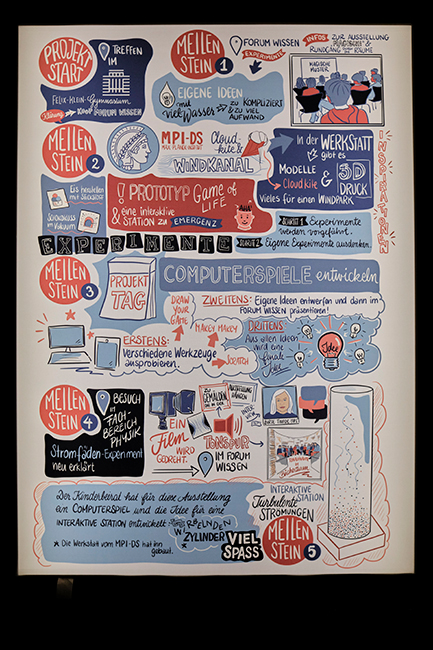 PROJEKT
START
TREFFEN
IM
FELIX-KLEIN-Gymnasium
FORUM WISSEN
MEILEN
STEIN 1
FORUM WISSEN
EXPERIMENTE
INFOS ZUR AUSSTELLUNG
RUNDGANG RÄUME
EIGENE IDEEN
mit
viel Wasser → zu KOMPLIZIERT
& ZU VIEL
AUFWAND
MAGISCHE
MUSTER
MEILEN
STEIN 2
MPI-DS
Cloud-
kite &
WINDKANAL
In der WERKSTATT
gibt es
MODELLE
Cloudkite & 3D
DRUCK
Vieles für einen WINDPARK
INSPIRATIONEN
Eis herstellen
mit
Schokokuss
im Vakuum
! PROTOTYP Game of
LIFE
& eine interaktive
STATION zu EMERGENZ
EXPERIMENTE
SCHRITT 1 Experimente
werden vorgeführt.
SCHRITT 2 Eigene Experimente ausdenken.
MEILEN
STEIN 3
PROJEKT
TAG
COMPUTERSPIELE entwickeln
DRAW
YOUR
GAME
ZWEITENS: Eigene Ideen entwerfen und dann im
FORUM WISSEN präsentieren!
MAKEY MAKEY
ERSTENS:
Verschiedene Werkzeuge
ausprobieren.
SCRATCH
DRITTENS:
Aus allen Ideen
wird eine
finale
Idee
Idee
MEILEN
STEIN 4
BESUCH
im
FACH-
BEREICH
PHYSIK
Stromfäden-Experiment
neu erklärt
EIN
Film
WIRD
GEDREHT.
ZU
GEMÄLDEN
TONSPUR
IM FORUM
WISSEN
Der Kinderbeirat hat für diese Ausstellung
ein COMPUTERSPIEL und die Idee für eine
INTERAKTIVE STATION entwickelt:
WIRBELNDEN
ZYLINDER
* Die Werkstatt vom MPI-DS hat ihn
gebaut.
VIEL
SPASS
INTERAKTIVE
STATION
Turbulente
STRÖMUNGEN
MEILEN
STEIN 5